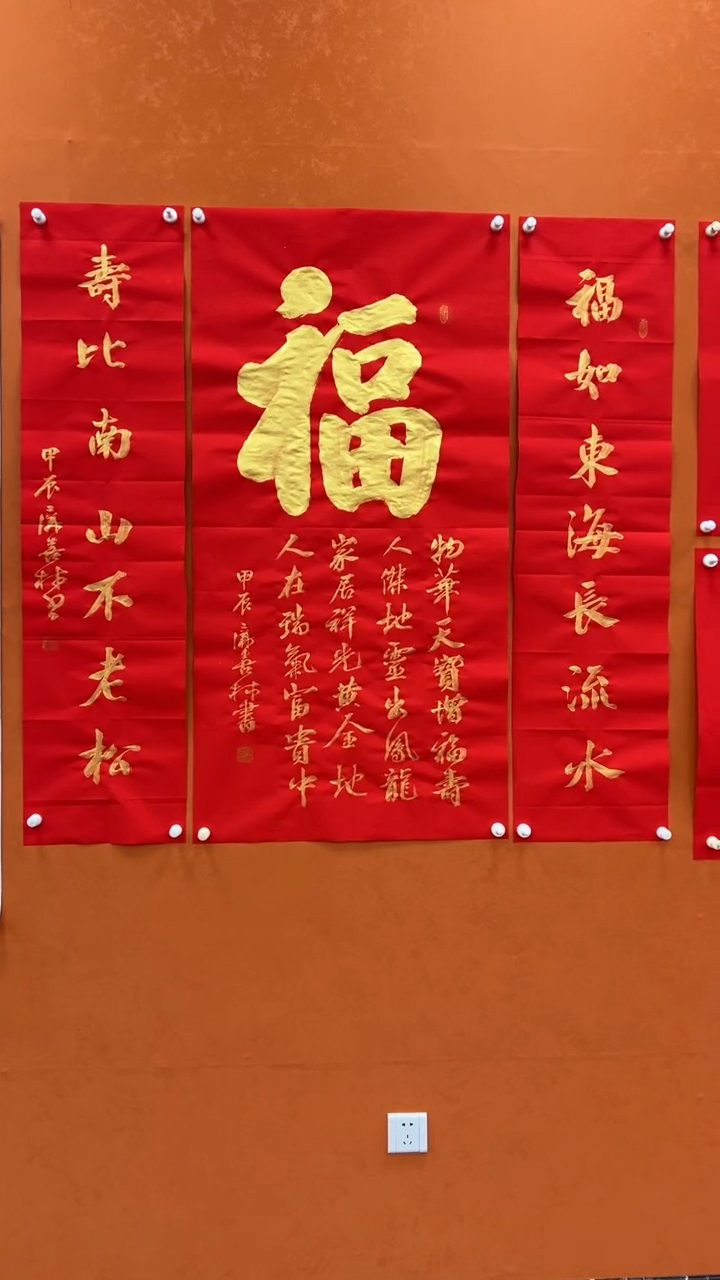 福如東海長流水
福
物華天寶增福壽
人傑地靈出鳳龍
家居祥光黄金地
人在瑞氣富貴中
甲辰 善林書
壽比南山不老松
甲辰 善林书